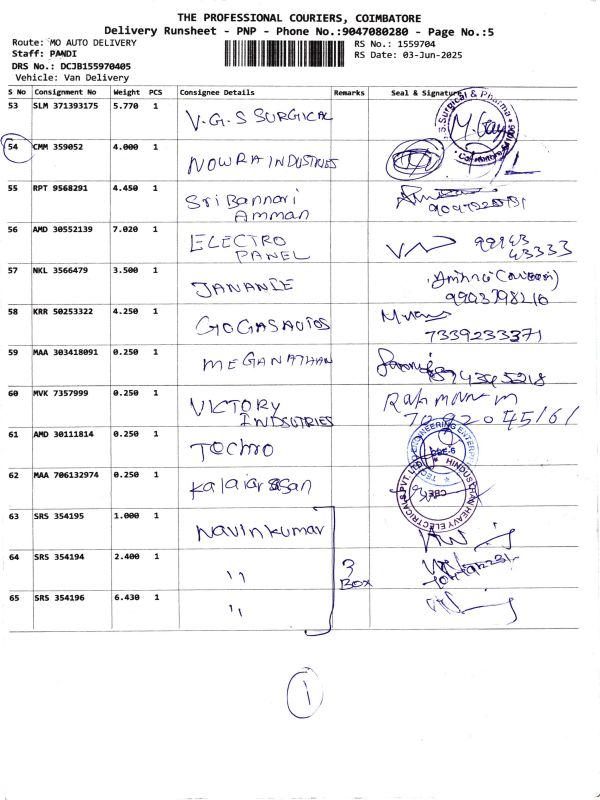 THE PROFESSIONAL COURIERS, COIMBATORE
Delivery Runsheet - PNP - Phone No.:9047080280 - Page No.:5
Route: MO AUTO DELIVERY RS No.: 1559704
Staff: PANDI RS Date: 03-Jun-2025
DRS No.: DCJB155970405
Vehicle: Van Delivery
S No Consignment No Weight PCS Consignee Details Remarks Seal & Signature
53 SLM 371393175 5.770 1 V.G.S SURGICAL
54 CMM 359052 4.000 1 NOWRA INDUSTRIES
55 RPT 9568291 4.450 1 Sri Bannari
Amman
56 AMD 30552139 7.020 1 ELECTRO
PANEL 43333
57 NKL 3566479 3.500 1 JANANIE
9903798216
58 KRR 50253322 4.250 1 GOGASAUTOS
7339233371
59 MAA 303418091 0.250 1 MEGANATHAN
60 MVK 7357999 0.250 1 VICTORY
INDSUTRIES
61 AMD 30111814 0.250 1 TECHNO
ENGINEERING ENTER
CBE-6
62 MAA 706132974 0.250 1 Kalaiarasan
HINDUSTAN HEAVY ELECTRICALS PVT. LTD
CBE
63 SRS 354195 1.000 1 Navinkumar
64 SRS 354194 2.400 1 " 3
Box
65 SRS 354196 6.430 1 "
1